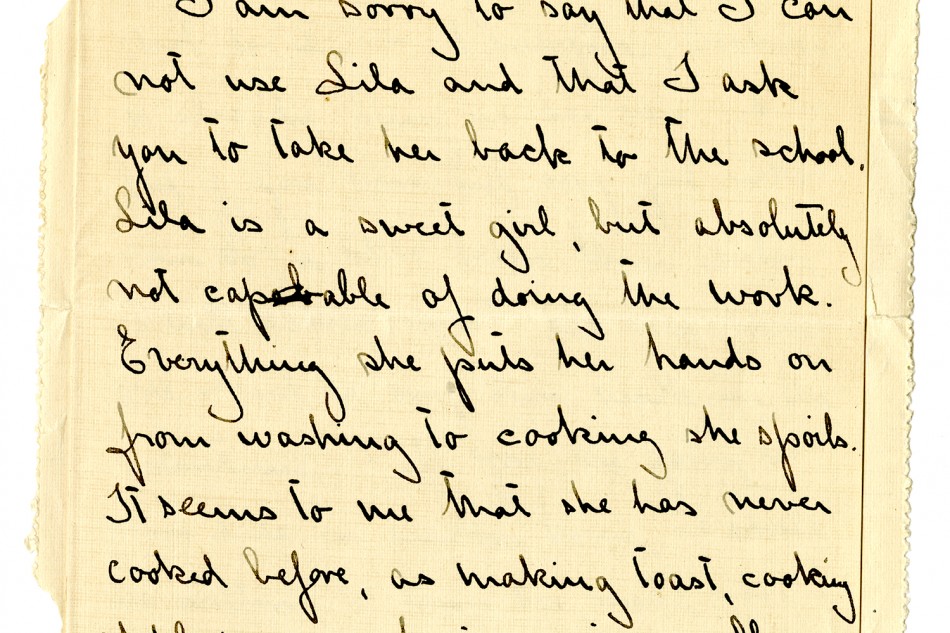 I am sorry to say that I can
not use Lila and that I ask
you to take her back to the school.
Lila is a sweet girl, but absolutely
not capable of doing the work.
Everything she puts her hands on
from washing to cooking she spoils.
It seems to me that she has never
cooked before, as making toast, cooking